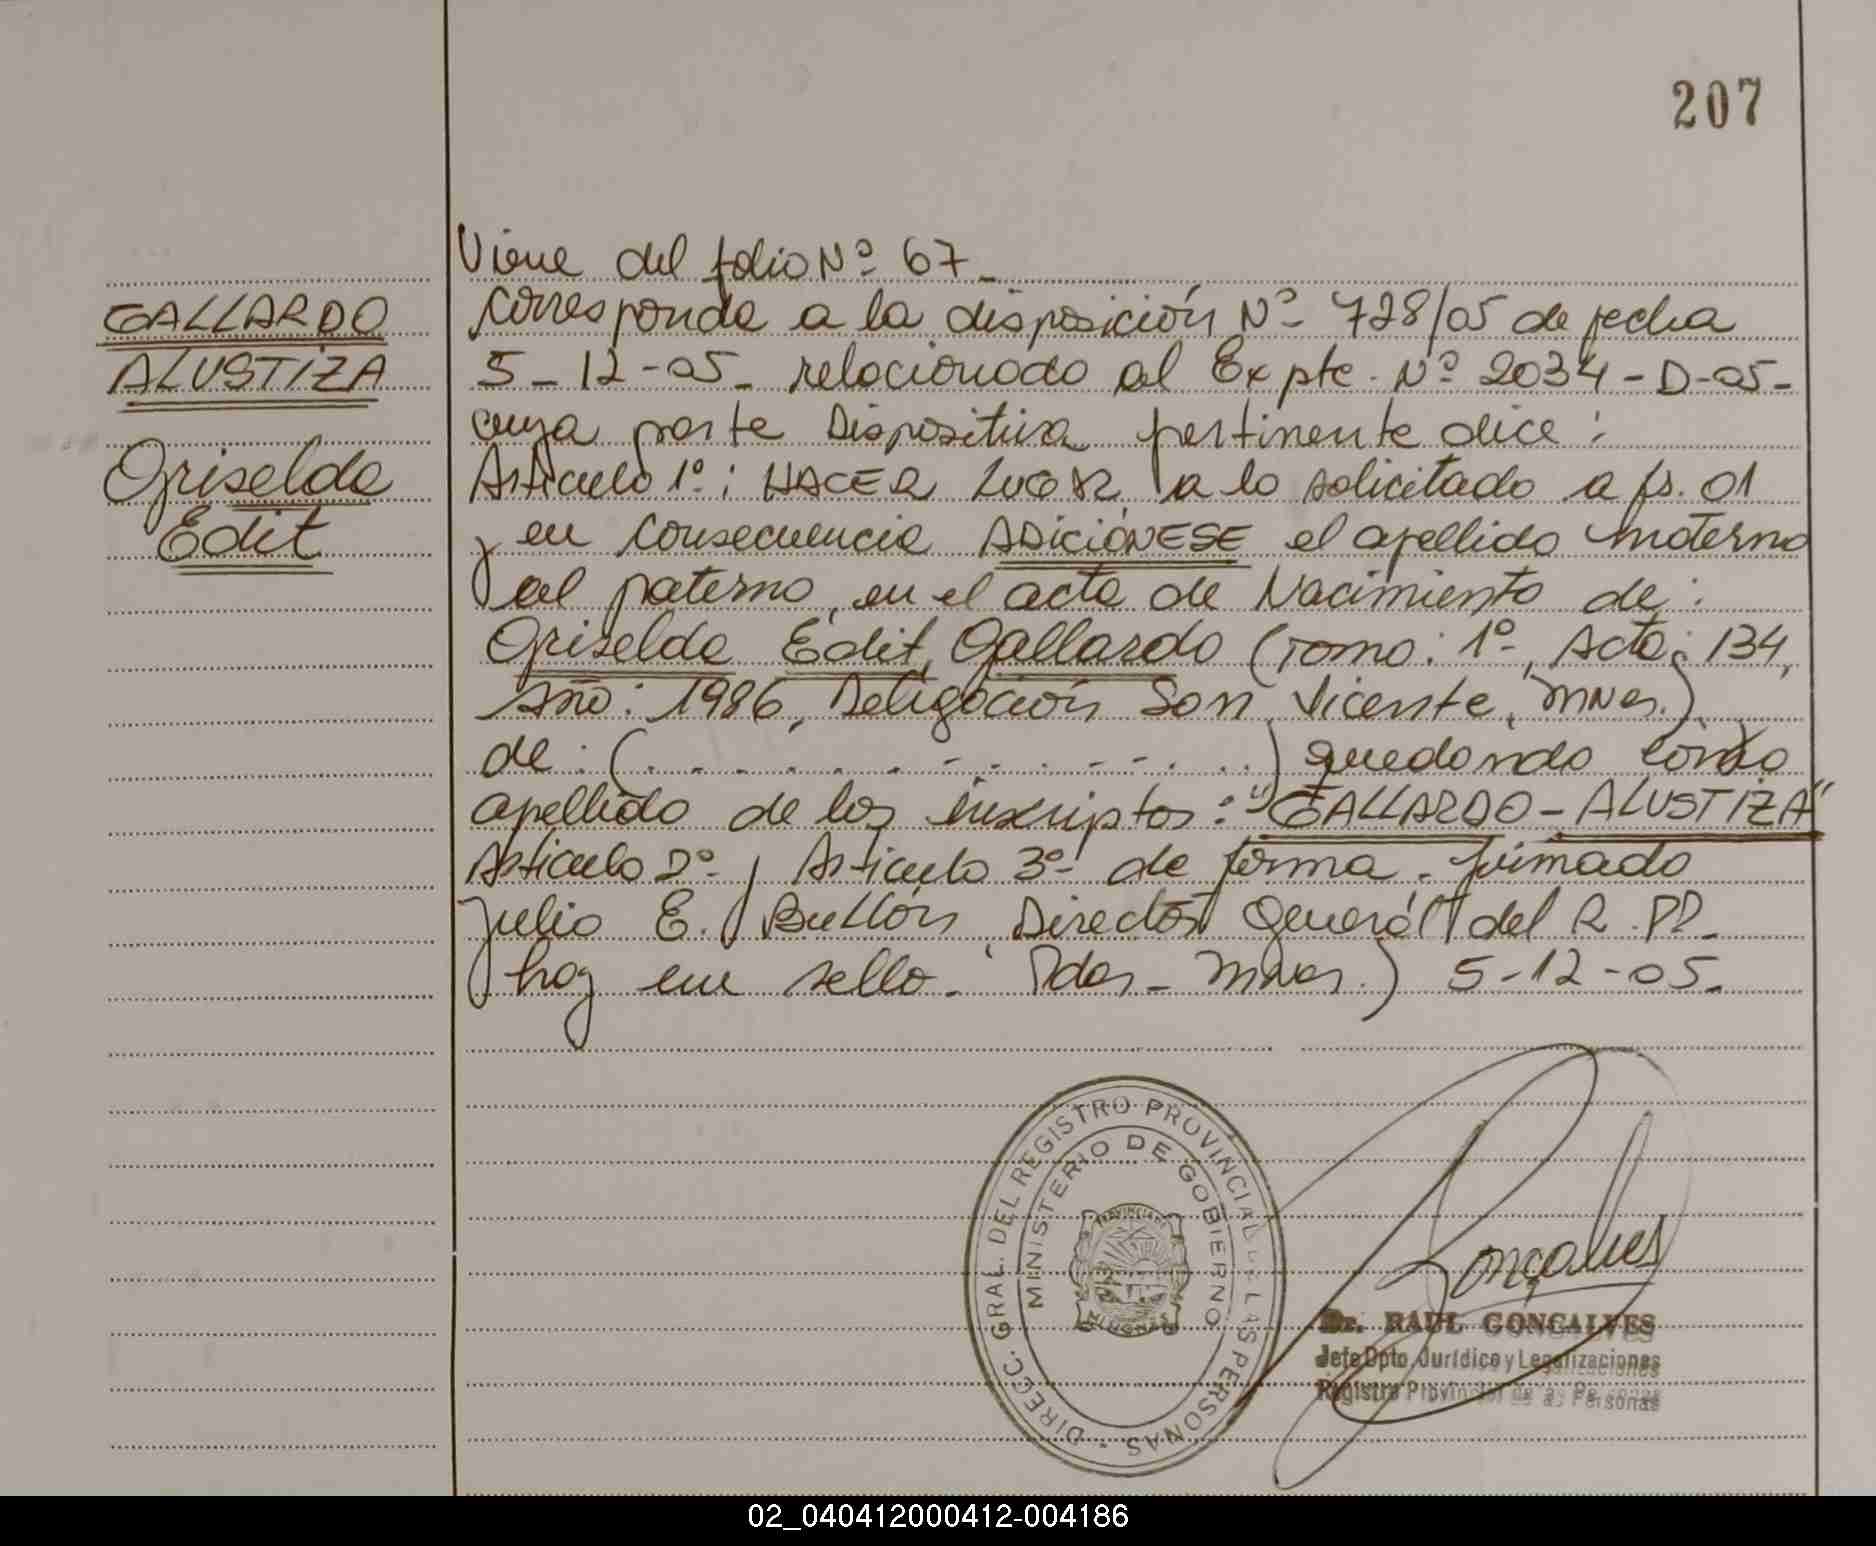 207
Viene del folio Nº 67-
GALLARDO
ALUSTIZA
Griselda
Edit
Corresponde a la disposición Nº 728/05 de fecha
5-12-05- relacionado al Expte. Nº 2034-D-05-
cuya parte Dispositiva pertinente dice:
Artículo 1º: HACER LUGAR a lo solicitado a fs. 01
y en consecuencia ADICIÓNESE el apellido materno
al paterno, en el acta de Nacimiento de:
Griselda Edit Gallardo (Tomo: 1º, Acta: 134,
Año: 1986, Delegación San Vicente, Mnes.)
de: (..............) quedando como
apellido de los inscriptos: "GALLARDO-ALUSTIZA"
Artículo 2º, Artículo 3º de forma. firmado
Julio E. Director General del R.PP.
hay un sello. Pdas- Mnes.) 5-12-05-
DIRECC. GRAL. DEL REGISTRO PROVINCIAL DE LAS PERSONAS -
MINISTERIO DE GOBIERNO
PROVINCIA DE
MISIONES
Gonçalves
Dr. RAUL GONCALVES
Jefe Dpto. Jurídico y Legalizaciones
Registro Provincial de as Personas
02_040412000412-004186